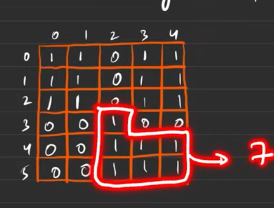 0 1 2 3 4
0 1 1 0 1 1
1 1 1 0 1 1
2 1 1 0 1 1
3 0 0 1 0 0
4 0 0 1 1 1 → 7
5 0 0 1 1 1